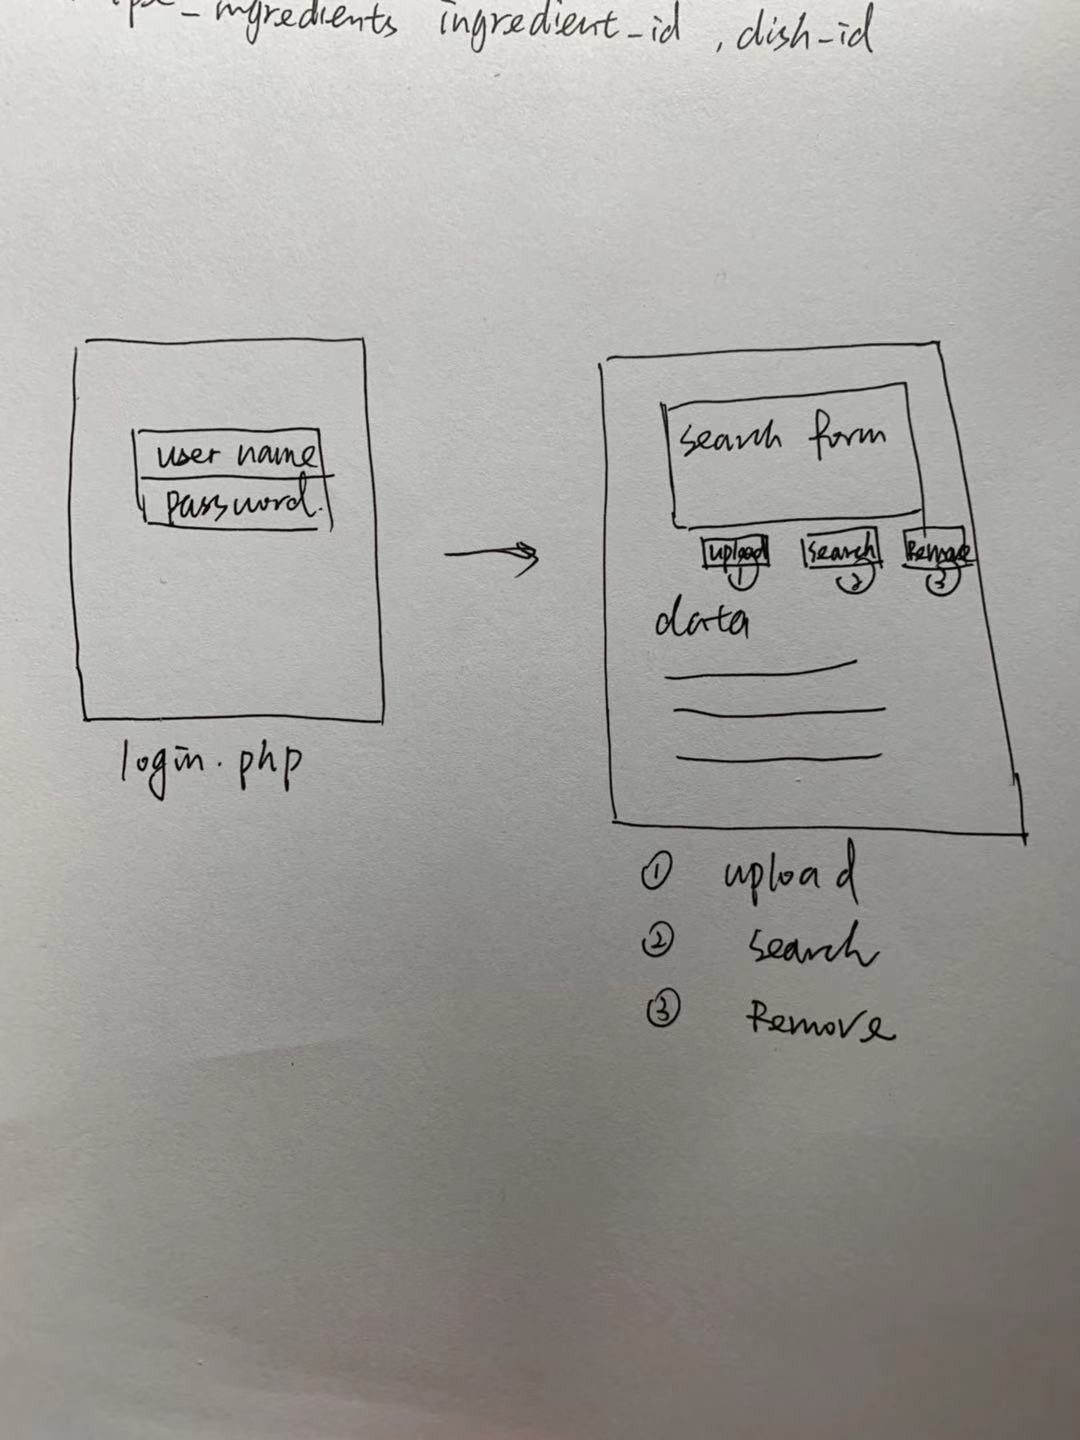 ingredient_id , dish_id
user name
password.
login.php
search form
upload search Remove
① ② ③
data
① upload
② search
③ Remove